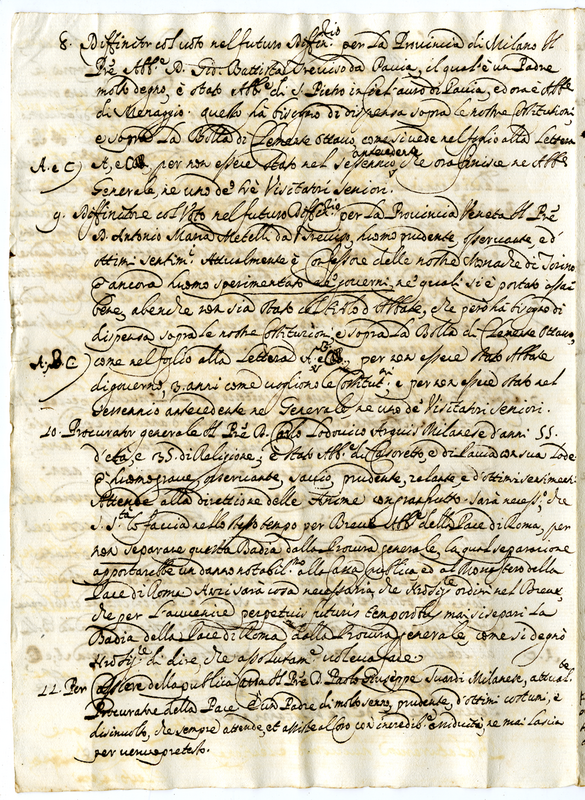 8. Diffinitor col voto nel futuro Diffin.rio per La Provincia di Milano Il
Pre Abb.e D. Gio. Battista Treviso da Pavia, il qual'è un Padre
molto degno, è stato Abb.e di S. Pietro in Ciel'auro di Pavia, ed ora è Abb.e
di Menaggio. questo hà bisogno di dispensa sopra le nostre Costituzioni,
e sopra La Bolla di Clemente ottavo, come si vede nel foglio alla Lettera
A. e C) A, e C, per non essere stato nel Sessennio antecedente, che ora finisce ne Abb.e
Generale, ne uno de' trè Visitatori Seniori.
9. Diffinitore col Voto nel futuro Diffin.rio per La Provincia Veneta Il Pre
D. Antonio Maria Metelli da Treviso, huomo prudente, osservante, e d'
ottimi sentim.ti Attualmente è Confessore delle nostre Monache di Torino
è ancora huomo sperimentato ne' governi, ne' quali si è portato assai
bene, abenche non sia stato col titolo d'Abbate, che però hà bisogno di
dispensa sopra le nostre Costituzioni, e sopra La Bolla di Clemente Ottavo,
A. B. C.) come nel foglio alla Lettera A. B. e C, per non essere stato Abbate
di governo, 3. anni come vogliono le Costituz.ni, e per non essere stato nel
Sessennio antecedente ne Generale ne uno de' Visitatori Seniori.
10. Procurator generale Il Pre D. Carlo Lodovico Arquis Milanese d'anni 55.
d'età, e 35. di Religione, è stato Abb.e di Casoreto, e di Pavia con sua Lode
è huomo grave, osservante, savio, prudente, zelante, e d'ottimi sentimenti
Attende alla direttione delle Anime con gran frutto. Sarà necess.o, che
S. S.tà lo faccia nello stesso tempo per Breve Abb.e della Pace di Roma, per
non separare questa Badia dalla Procura generale, la qual separazione
apportarebbe un danno notabiliss.mo alla casa publica ed al Monastero della
Pace di Roma Anzi sarà cosa necessaria, che ordini nel Breve,
che per L'avvenire perpetuis futuris temporibus mai si separi La
Badia della Pace di Roma dalla Procura generale, come si degnò
di dire, che assolutam.te voleva fare.
11. Per Cassiere della publica Cassa Il Pre D. Paolo Giuseppe Suardi Milanese, attual.te
Procuratore della Pace. È un Padre di molto senno, prudente, d'ottimi costumi, è
disinvolto, che sempre attende, et assiste al Coro con incredib.e assiduità, ne mai lascia
per verun pretesto.